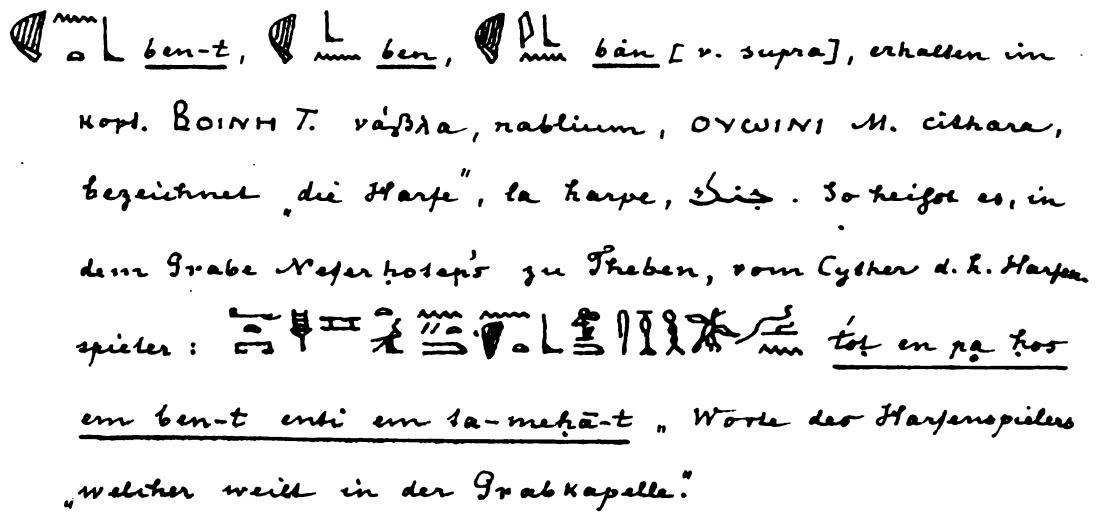 ben-t, ben, bȧn [v. supra], erhalten im
kopt. ВOINH T. νάβλα, nablium, OYWINI M. cithara,
bezeichnet „die Harfe", la harpe, جنك. So heißt es, in
dem Grabe Neferḥotep's zu Theben, vom Cyther d. h. Harfen-
spieler: ṭoṭ en pa ḥos
em ben-t enti em ta-meḥā-t „Worte des Harfenspielers
„welcher weilt in der Grabkapelle."